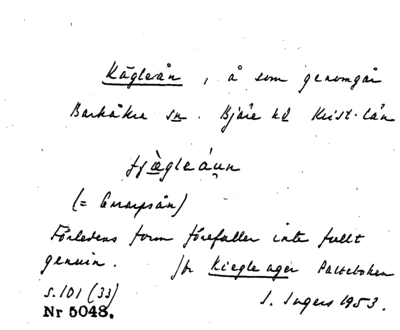 Kägleån, å som genomgår
Barkåkra sn. Bjäre hd Krist. län
fjägleáun
(= Örarpsån)
Förledens form förefaller inte fullt
genuin. Jfr Kiegle ager Palteboken
s. 101 (33)
I. Ingers 1953.
Nr 5048.